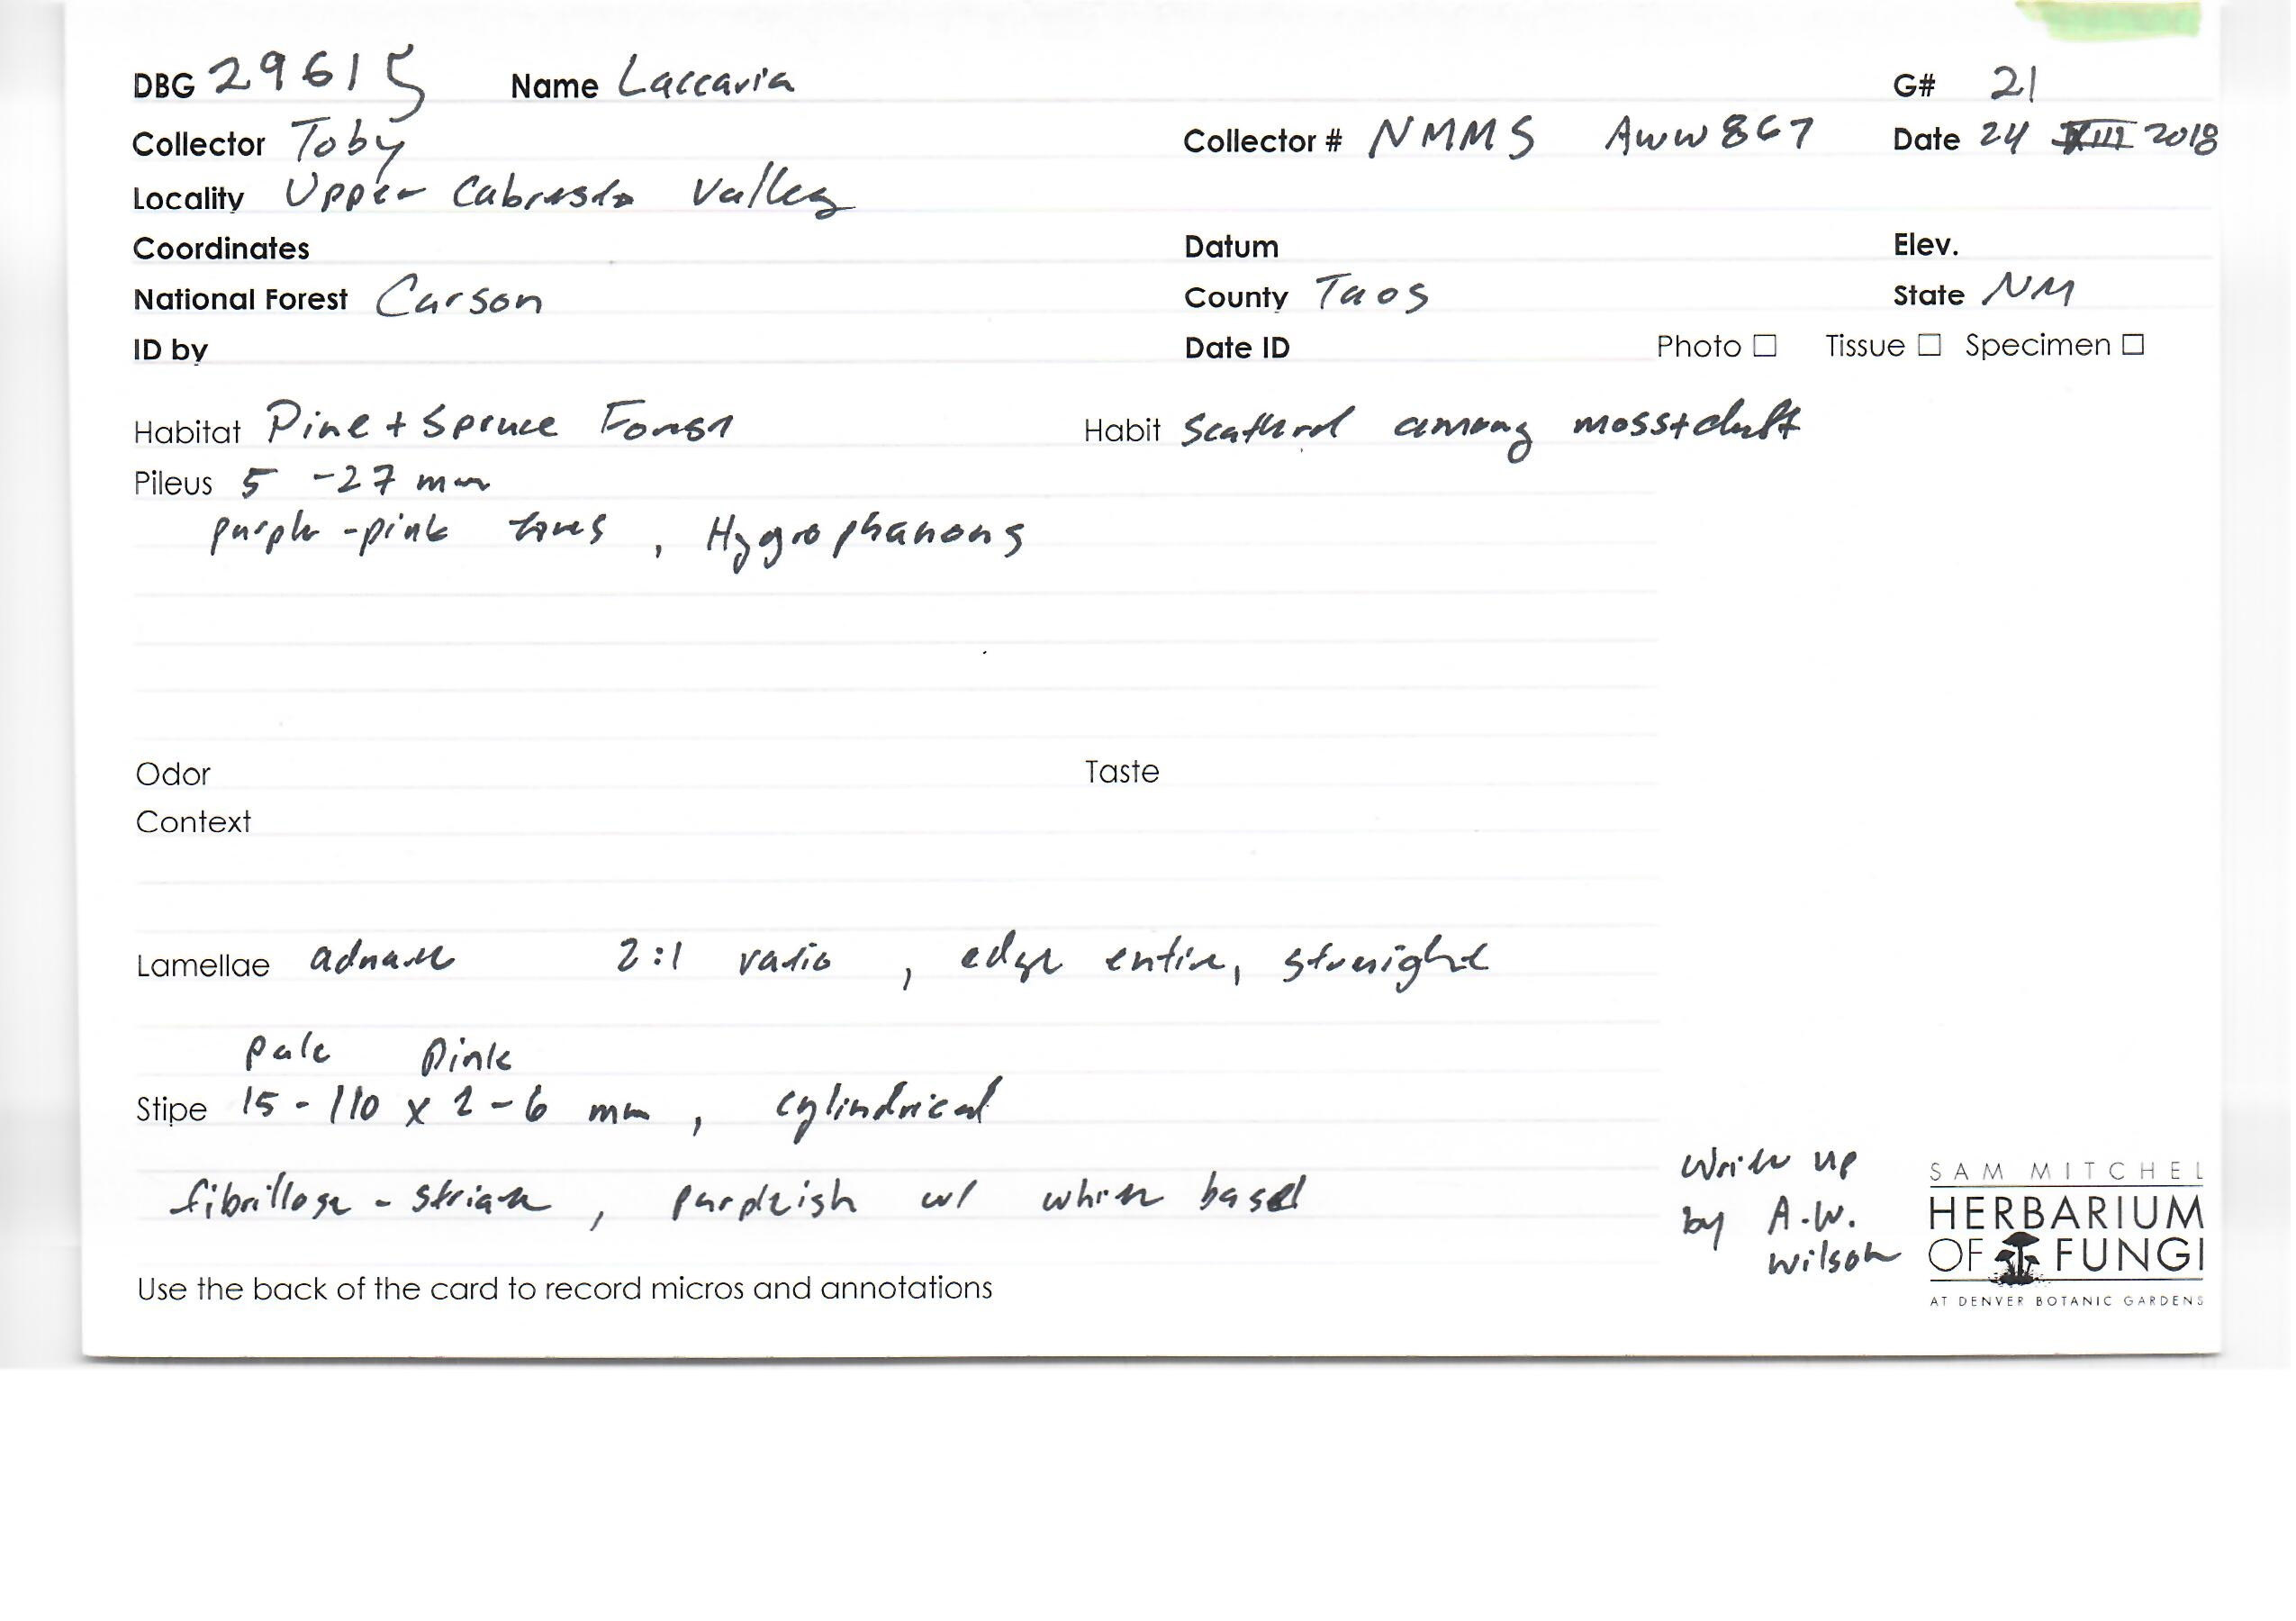 DBG 29615 Name Laccaria G# 21
Collector Toby Collector # NMMS AWW867 Date 24 VIII 2018
Locality Upper Cabresto Valley
Coordinates Datum Elev.
National Forest Carson County Taos State NM
ID by Date ID Photo ☐ Tissue ☐ Specimen ☐
Habitat Pine + Spruce Forest Habit Scattered among moss + duff
Pileus 5 - 27 mm
purple - pink tones , Hygrophanous
Odor Taste
Context
Lamellae adnate 2:1 ratio , edge entire, straight
pale pink
Stipe 15 - 110 x 2 - 6 mm , cylindrical
fibrillose - striate , purpleish w/ white basal
Write up
by A.W.
Wilson
SAM MITCHEL
HERBARIUM
OF FUNGI
AT DENVER BOTANIC GARDENS
Use the back of the card to record micros and annotations